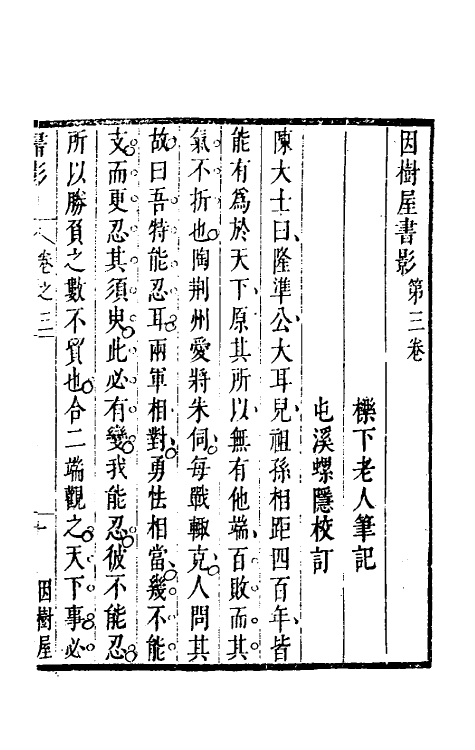 因樹屋書影第三卷
櫟下老人筆記
屯溪螺隱校訂
陳大士曰隆準公大耳兒祖孫相距四百年皆
能有爲於天下原其所以無有他端百敗而其
氣不折也陶荆州愛將朱伺每戰輙克人問其
故曰吾特能忍耳兩軍相對勇怯相當幾不能
支而更忍其須臾此必有變我能忍彼不能忍
所以勝負之數不貿也合二端觀之天下事必
書影
卷之三
一
因樹屋